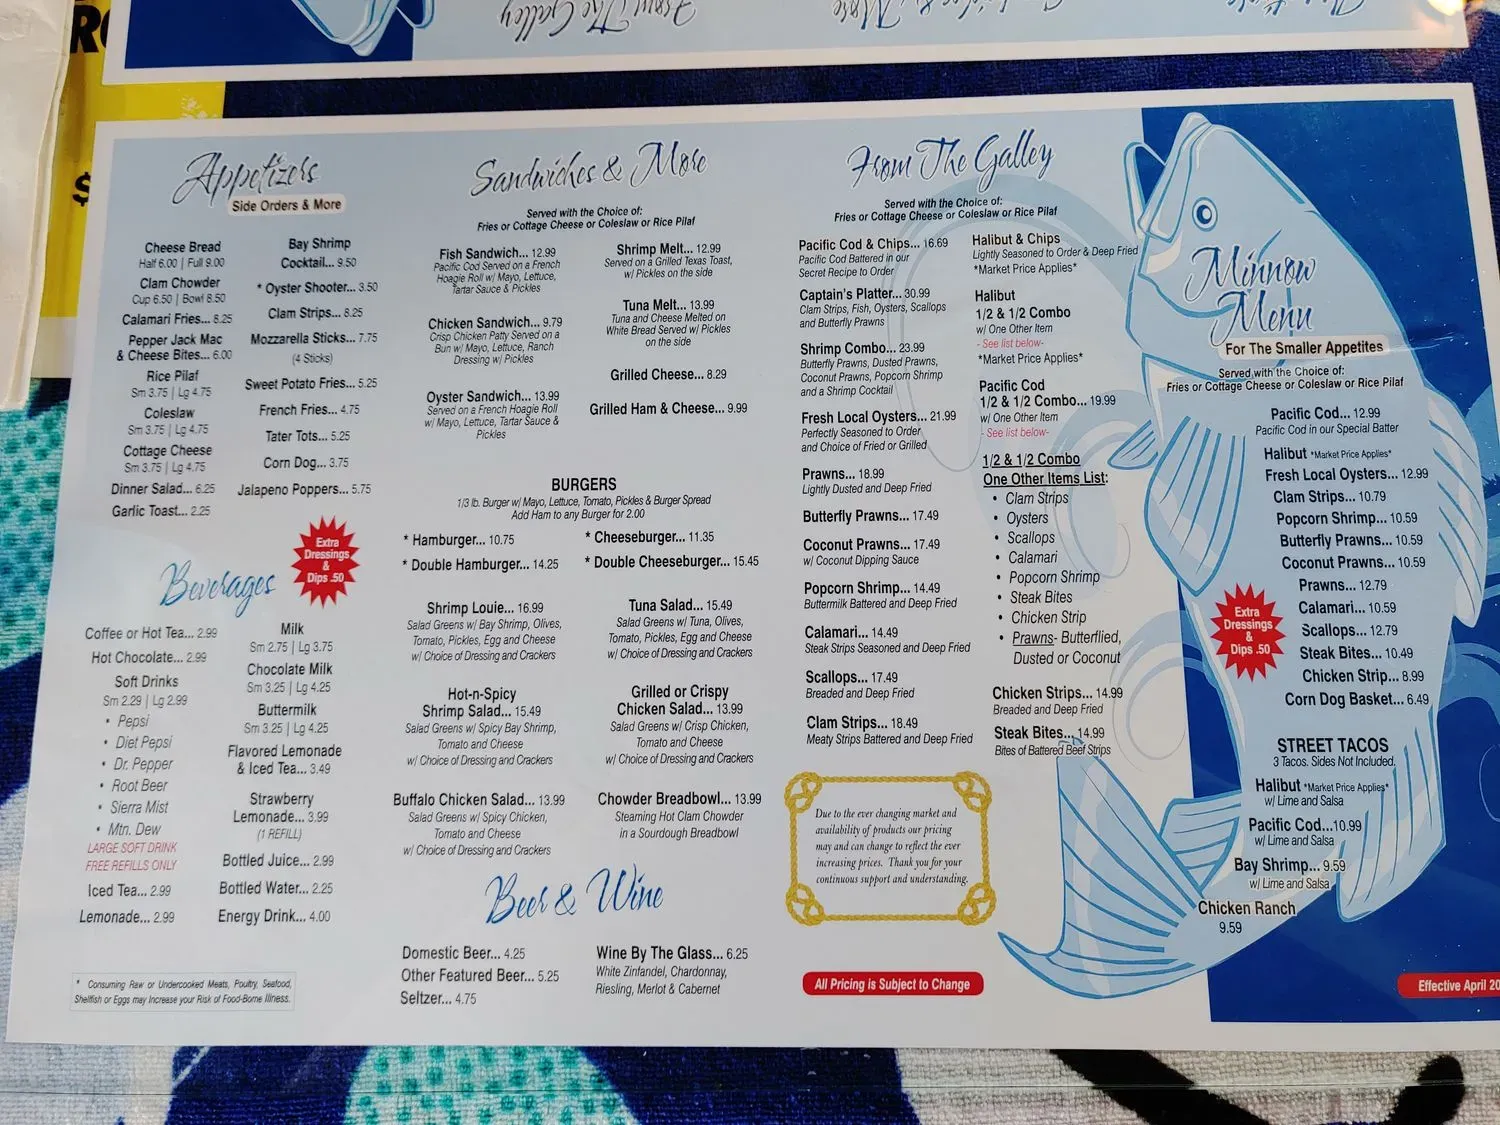 From The Galley
Appetizers
Side Orders & More
Cheese Bread
Half 6.00 | Full 9.00
Clam Chowder
Cup 6.50 | Bowl 8.50
Calamari Fries... 8.25
Pepper Jack Mac
& Cheese Bites... 6.00
Rice Pilaf
Sm 3.75 | Lg 4.75
Coleslaw
Sm 3.75 | Lg 4.75
Cottage Cheese
Sm 3.75 | Lg 4.75
Dinner Salad... 6.25
Garlic Toast... 2.25
Bay Shrimp
Cocktail... 9.50
* Oyster Shooter... 3.50
Clam Strips... 8.25
Mozzarella Sticks... 7.75
(4 Sticks)
Sweet Potato Fries... 5.25
French Fries... 4.75
Tater Tots... 5.25
Corn Dog... 3.75
Jalapeno Poppers... 5.75
Extra
Dressings
&
Dips .50
Beverages
Coffee or Hot Tea... 2.99
Hot Chocolate... 2.99
Soft Drinks
Sm 2.29 | Lg 2.99
• Pepsi
• Diet Pepsi
• Dr. Pepper
• Root Beer
• Sierra Mist
• Mtn. Dew
LARGE SOFT DRINK
FREE REFILLS ONLY
Iced Tea... 2.99
Lemonade... 2.99
Milk
Sm 2.75 | Lg 3.75
Chocolate Milk
Sm 3.25 | Lg 4.25
Buttermilk
Sm 3.25 | Lg 4.25
Flavored Lemonade
& Iced Tea... 3.49
Strawberry
Lemonade... 3.99
(1 REFILL)
Bottled Juice... 2.99
Bottled Water... 2.25
Energy Drink... 4.00
* Consuming Raw or Undercooked Meats, Poultry, Seafood,
Shellfish or Eggs may Increase your Risk of Food-Borne Illness.
Sandwiches & More
Served with the Choice of:
Fries or Cottage Cheese or Coleslaw or Rice Pilaf
Fish Sandwich... 12.99
Pacific Cod Served on a French
Hoagie Roll w/ Mayo, Lettuce,
Tartar Sauce & Pickles
Chicken Sandwich... 9.79
Crisp Chicken Patty Served on a
Bun w/ Mayo, Lettuce, Ranch
Dressing w/ Pickles
Oyster Sandwich... 13.99
Served on a French Hoagie Roll
w/ Mayo, Lettuce, Tartar Sauce &
Pickles
Shrimp Melt... 12.99
Served on a Grilled Texas Toast,
w/ Pickles on the side
Tuna Melt... 13.99
Tuna and Cheese Melted on
White Bread Served w/ Pickles
on the side
Grilled Cheese... 8.29
Grilled Ham & Cheese... 9.99
BURGERS
1/3 lb. Burger w/ Mayo, Lettuce, Tomato, Pickles & Burger Spread
Add Ham to any Burger for 2.00
* Hamburger... 10.75
* Cheeseburger... 11.35
* Double Hamburger... 14.25
* Double Cheeseburger... 15.45
Shrimp Louie... 16.99
Salad Greens w/ Bay Shrimp, Olives,
Tomato, Pickles, Egg and Cheese
w/ Choice of Dressing and Crackers
Tuna Salad... 15.49
Salad Greens w/ Tuna, Olives,
Tomato, Pickles, Egg and Cheese
w/ Choice of Dressing and Crackers
Hot-n-Spicy
Shrimp Salad... 15.49
Salad Greens w/ Spicy Bay Shrimp,
Tomato and Cheese
w/ Choice of Dressing and Crackers
Grilled or Crispy
Chicken Salad... 13.99
Salad Greens w/ Crisp Chicken,
Tomato and Cheese
w/ Choice of Dressing and Crackers
Buffalo Chicken Salad... 13.99
Salad Greens w/ Spicy Chicken,
Tomato and Cheese
w/ Choice of Dressing and Crackers
Chowder Breadbowl... 13.99
Steaming Hot Clam Chowder
in a Sourdough Breadbowl
Beer & Wine
Domestic Beer... 4.25
Other Featured Beer... 5.25
Seltzer... 4.75
Wine By The Glass... 6.25
White Zinfandel, Chardonnay,
Riesling, Merlot & Cabernet
From The Galley
Served with the Choice of:
Fries or Cottage Cheese or Coleslaw or Rice Pilaf
Pacific Cod & Chips... 16.69
Pacific Cod Battered in our
Secret Recipe to Order
Captain's Platter... 30.99
Clam Strips, Fish, Oysters, Scallops
and Butterfly Prawns
Shrimp Combo... 23.99
Butterfly Prawns, Dusted Prawns,
Coconut Prawns, Popcorn Shrimp
and a Shrimp Cocktail
Fresh Local Oysters... 21.99
Perfectly Seasoned to Order
and Choice of Fried or Grilled
Prawns... 18.99
Lightly Dusted and Deep Fried
Butterfly Prawns... 17.49
Coconut Prawns... 17.49
w/ Coconut Dipping Sauce
Popcorn Shrimp... 14.49
Buttermilk Battered and Deep Fried
Calamari... 14.49
Steak Strips Seasoned and Deep Fried
Scallops... 17.49
Breaded and Deep Fried
Clam Strips... 18.49
Meaty Strips Battered and Deep Fried
Halibut & Chips
Lightly Seasoned to Order & Deep Fried
*Market Price Applies*
Halibut
1/2 & 1/2 Combo
w/ One Other Item
- See list below-
*Market Price Applies*
Pacific Cod
1/2 & 1/2 Combo... 19.99
w/ One Other Item
- See list below-
1/2 & 1/2 Combo
One Other Items List:
• Clam Strips
• Oysters
• Scallops
• Calamari
• Popcorn Shrimp
• Steak Bites
• Chicken Strip
• Prawns- Butterflied,
Dusted or Coconut
Chicken Strips... 14.99
Breaded and Deep Fried
Steak Bites... 14.99
Bites of Battered Beef Strips
Due to the ever changing market and
availability of products our pricing
may and can change to reflect the ever
increasing prices. Thank you for your
continuous support and understanding.
All Pricing is Subject to Change
Minnow
Menu
For The Smaller Appetites
Served with the Choice of:
Fries or Cottage Cheese or Coleslaw or Rice Pilaf
Pacific Cod... 12.99
Pacific Cod in our Special Batter
Halibut *Market Price Applies*
Fresh Local Oysters... 12.99
Clam Strips... 10.79
Popcorn Shrimp... 10.59
Butterfly Prawns... 10.59
Coconut Prawns... 10.59
Prawns... 12.79
Calamari... 10.59
Scallops... 12.79
Steak Bites... 10.49
Chicken Strip... 8.99
Corn Dog Basket... 6.49
Extra
Dressings
&
Dips .50
STREET TACOS
3 Tacos. Sides Not Included.
Halibut *Market Price Applies*
w/ Lime and Salsa
Pacific Cod...10.99
w/ Lime and Salsa
Bay Shrimp... 9.59
w/ Lime and Salsa
Chicken Ranch
9.59
Effective April 20